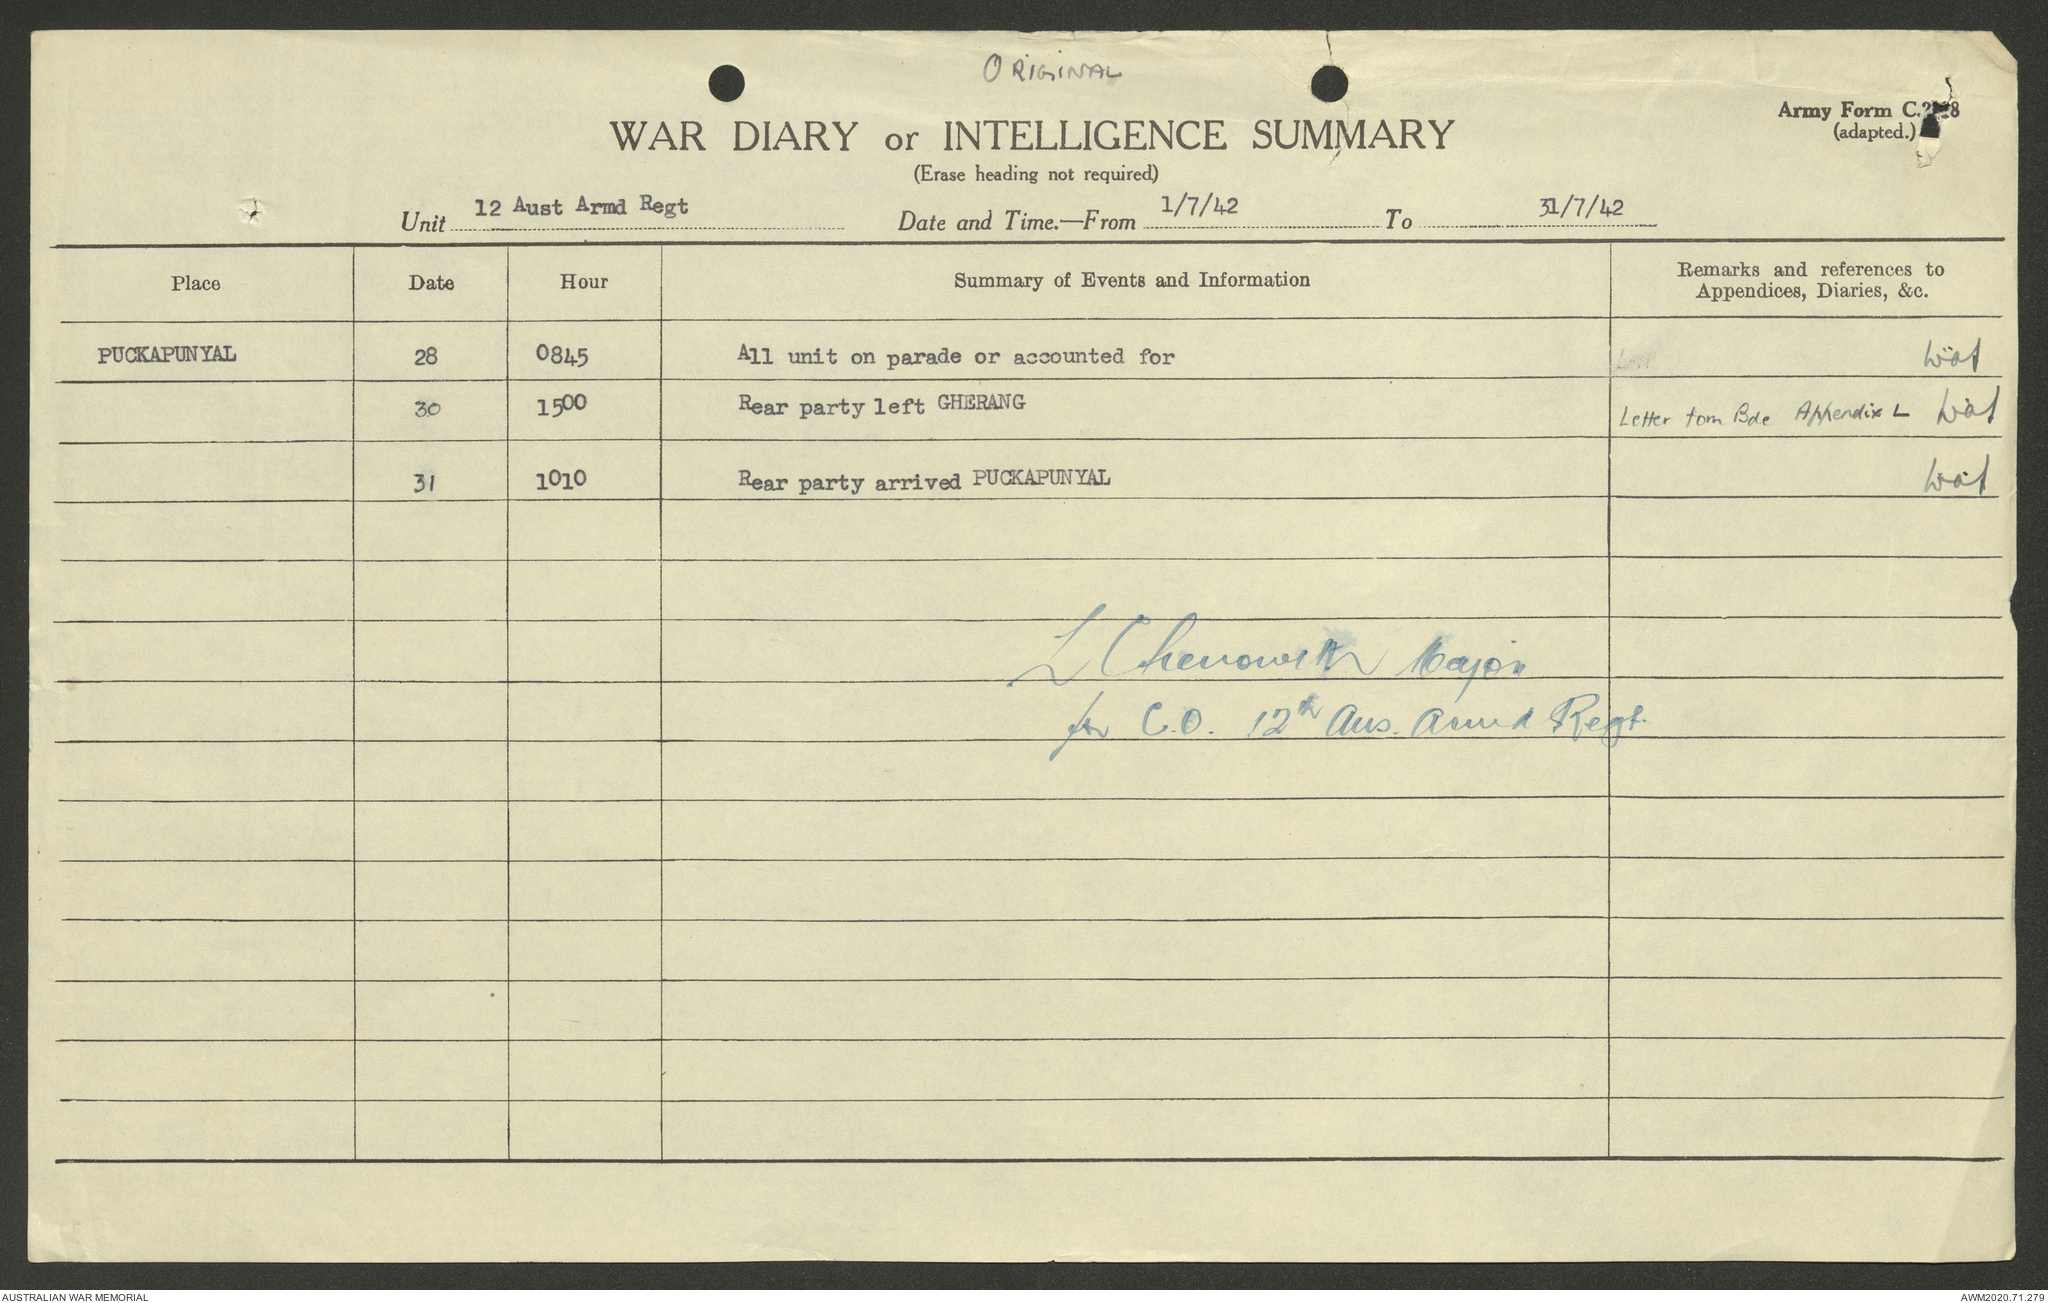 ORIGINAL
Army Form C.
(adapted.)
WAR DIARY or INTELLIGENCE SUMMARY
(Erase heading not required)
Unit 12 Aust Armd Regt Date and Time.—From 1/7/42 To 31/7/42
Place Date Hour Summary of Events and Information Remarks and references to Appendices, Diaries, &c.
PUCKAPUNYAL 28 0845 All unit on parade or accounted for
30 1500 Rear party left GHERANG Letter from Bde Appendix L
31 1010 Rear party arrived PUCKAPUNYAL
L Chenoweth Major
for C.O. 12th Aus. Armd Regt.
AUSTRALIAN WAR MEMORIAL AWM2020.71.279